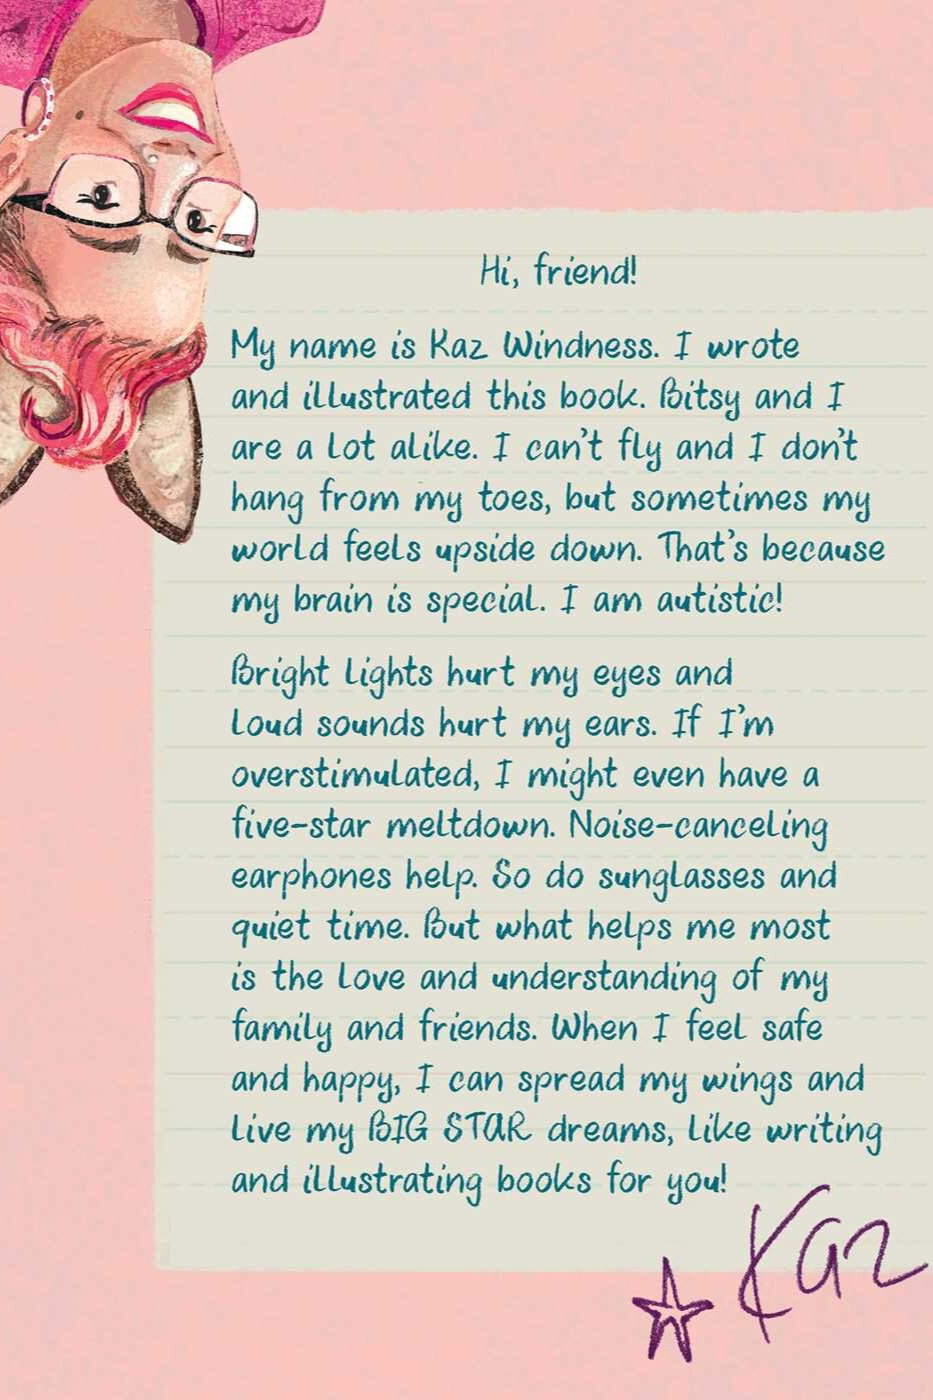 Hi, friend!
My name is Kaz Windness. I wrote
and illustrated this book. Bitsy and I
are a lot alike. I can't fly and I don't
hang from my toes, but sometimes my
world feels upside down. That's because
my brain is special. I am autistic!
Bright lights hurt my eyes and
loud sounds hurt my ears. If I'm
overstimulated, I might even have a
five-star meltdown. Noise-canceling
earphones help. So do sunglasses and
quiet time. But what helps me most
is the love and understanding of my
family and friends. When I feel safe
and happy, I can spread my wings and
live my BIG STAR dreams, like writing
and illustrating books for you!
Kaz